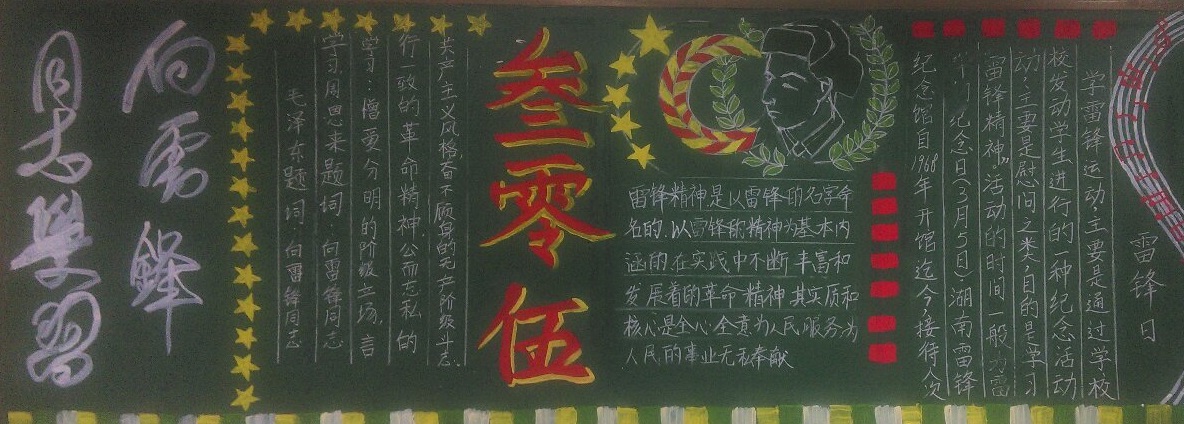 向雷鋒
同志學習
毛泽东题词:向雷锋同志
学习.周恩来题词:向雷锋同志
学习:憎爱分明的阶级立场,言
行一致的革命精神.公而忘私的
共产主义风格,奋不顾身的无产阶级斗志.
叁零伍
雷锋精神是以雷锋的名字命
名的.以雷锋的精神为基本内
涵的.在实践中不断丰富和
发展着的革命精神.其实质和
核心是全心全意为人民服务为
人民的事业无私奉献
雷锋日
学雷锋运动,主要是通过学校
校发动学生进行的一种纪念活动
动,主要是慰问之类,目的是学习
雷锋精神"活动的时间一般为雷
纪念日(3月5日)湖南雷锋
纪念馆自1968年开馆迄今,接待人次